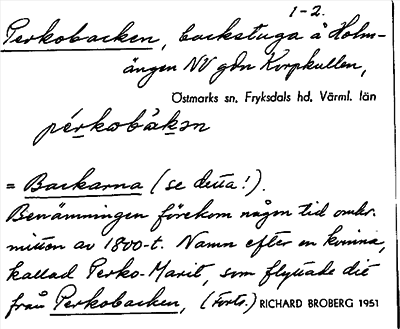 1-2.
Perkobacken, backstuga å Holm-
ängen NV gdn Korpkullen,
Östmarks sn, Fryksdals hd, Värml. län
pérkobàkən
= Backarna (se detta!).
Benämningen förekom någon tid omkr.
mitten av 1800-t. Namn efter en kvinna,
kallad Perko-Marit, som flyttade dit
från Perkobacken, (Forts.) RICHARD BROBERG 1951